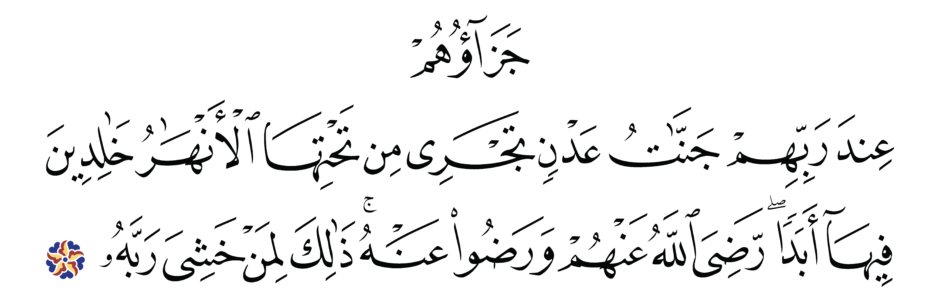 جَزَآؤُهُمْ
عِندَ رَبِّهِمْ جَنَّٰتُ عَدْنٍ تَجْرِى مِن تَحْتِهَا ٱلْأَنْهَٰرُ خَٰلِدِينَ
فِيهَآ أَبَدًا ۖ رَّضِىَ ٱللَّهُ عَنْهُمْ وَرَضُوا۟ عَنْهُ ۚ ذَٰلِكَ لِمَنْ خَشِىَ رَبَّهُۥ